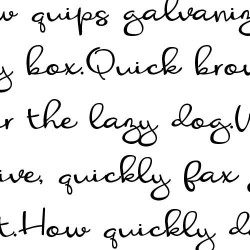 w quips galvaniz
y box.Quick brow
r the lazy dog.W
ive, quickly fax j
t.How quickly d